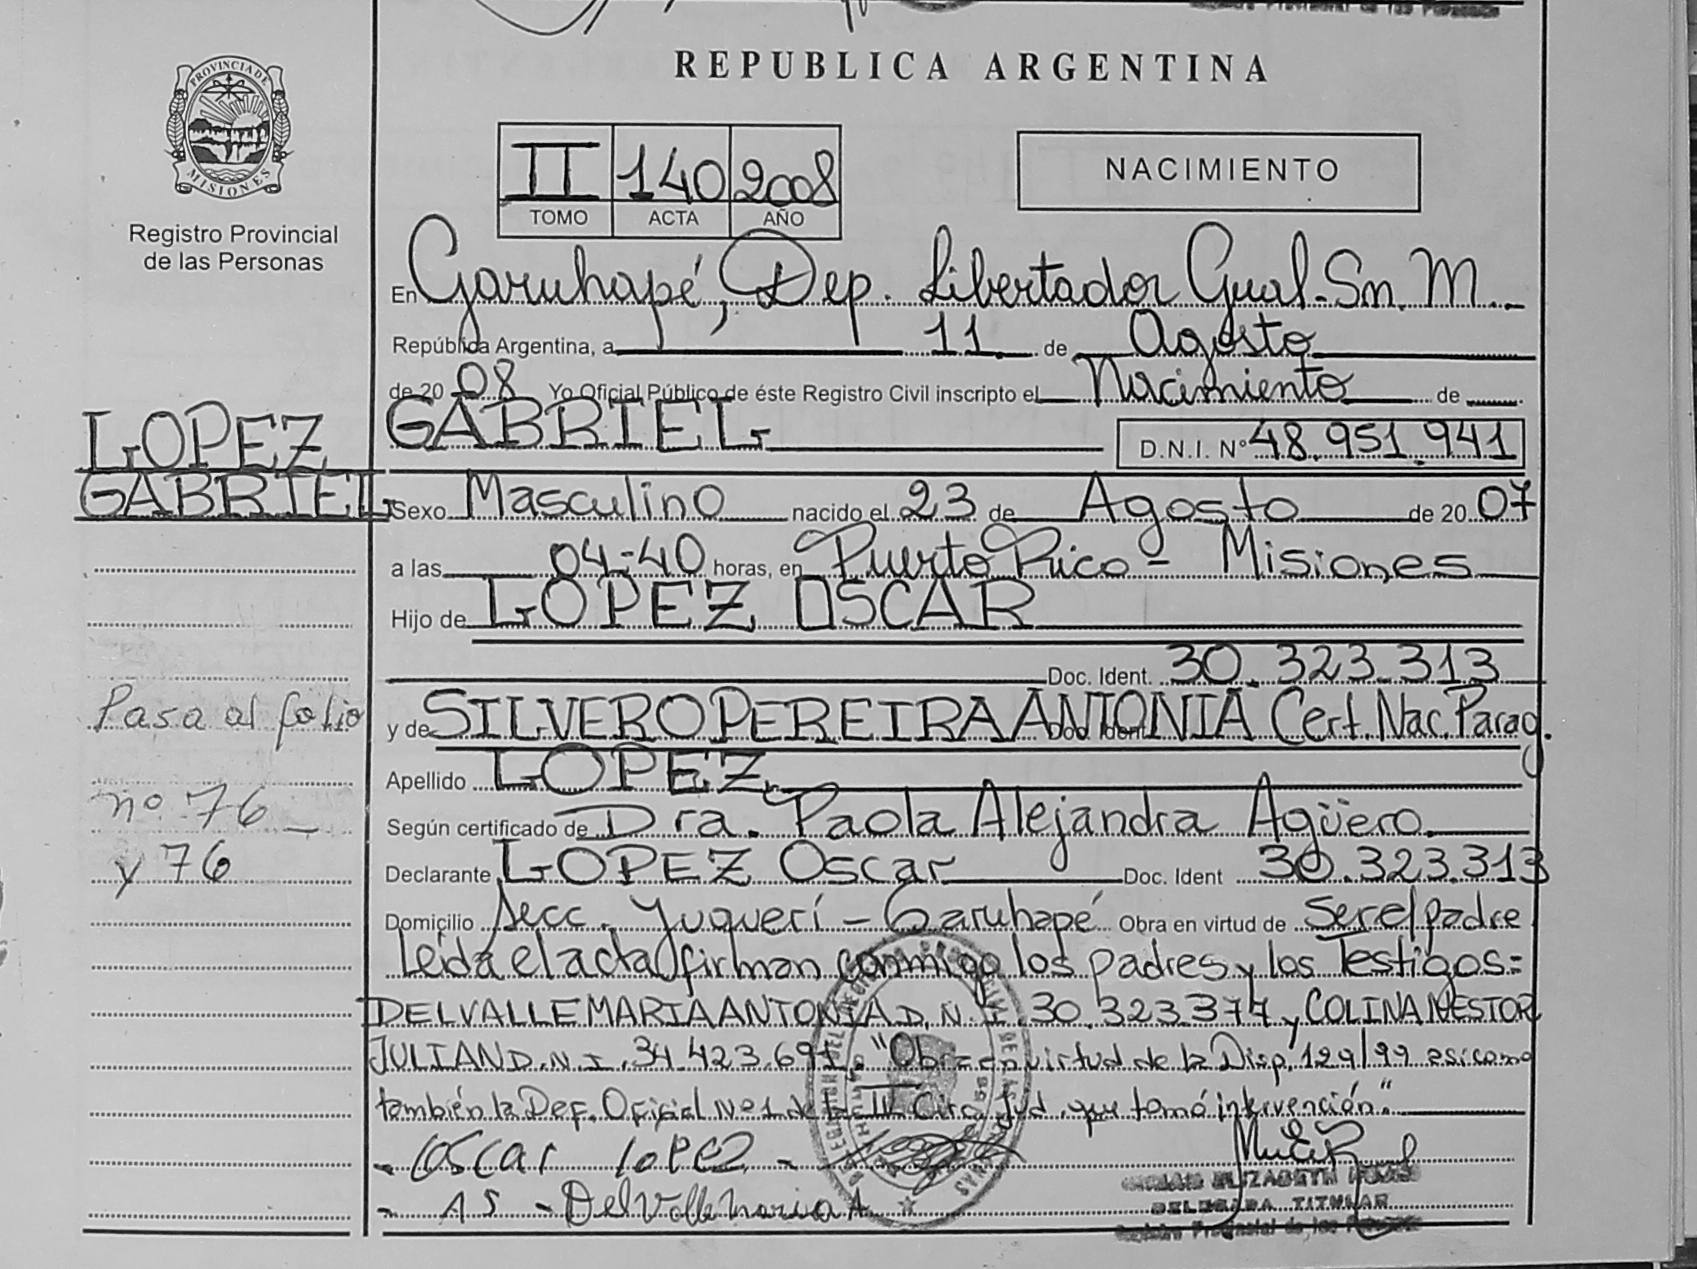 REPUBLICA ARGENTINA
PROVINCIA DE
MISIONES
Registro Provincial
de las Personas
II 140 2008
TOMO ACTA AÑO
NACIMIENTO
En Garuhapé, Dep. Libertador Gual. Sn. M.
República Argentina, a 11 de Agosto
de 20 08 Yo Oficial Público de éste Registro Civil inscripto el Nacimiento de
GABRIEL D.N.I. Nº 48.951.941
LOPEZ
GABRIEL
Sexo Masculino nacido el 23 de Agosto de 20 07
a las 04-40 horas, en Puerto Rico - Misiones
Hijo de LOPEZ OSCAR
Doc. Ident. 30.323.313
Pasa al folio
nº 76
y 76
y de SILVERO PEREIRA ANTONIA Cert. Nac. Parag.
Apellido LOPEZ
Según certificado de Dra. Paola Alejandra Agüero
Declarante LOPEZ Oscar Doc. Ident 30.323.313
Domicilio Secc. Yuquerí - Garuhapé Obra en virtud de Ser el padre
Leida el acta firman conmigo los padres y los Testigos=
DELVALLE MARIA ANTONIA D.N.I. 30.323.377 y COLINA NESTOR
JULIAN D.N.I. 34.423.69 "Obra en virtud de la Disp. 129/99 asi como
también la Def. Oficial Nº 1 de la IV Circ. Jud. que tomó intervención."
- Oscar Lopez -
- AS - Del Valle Maria A.
ELIZABETH
DELEGADA TITULAR
Registro Provincial de las